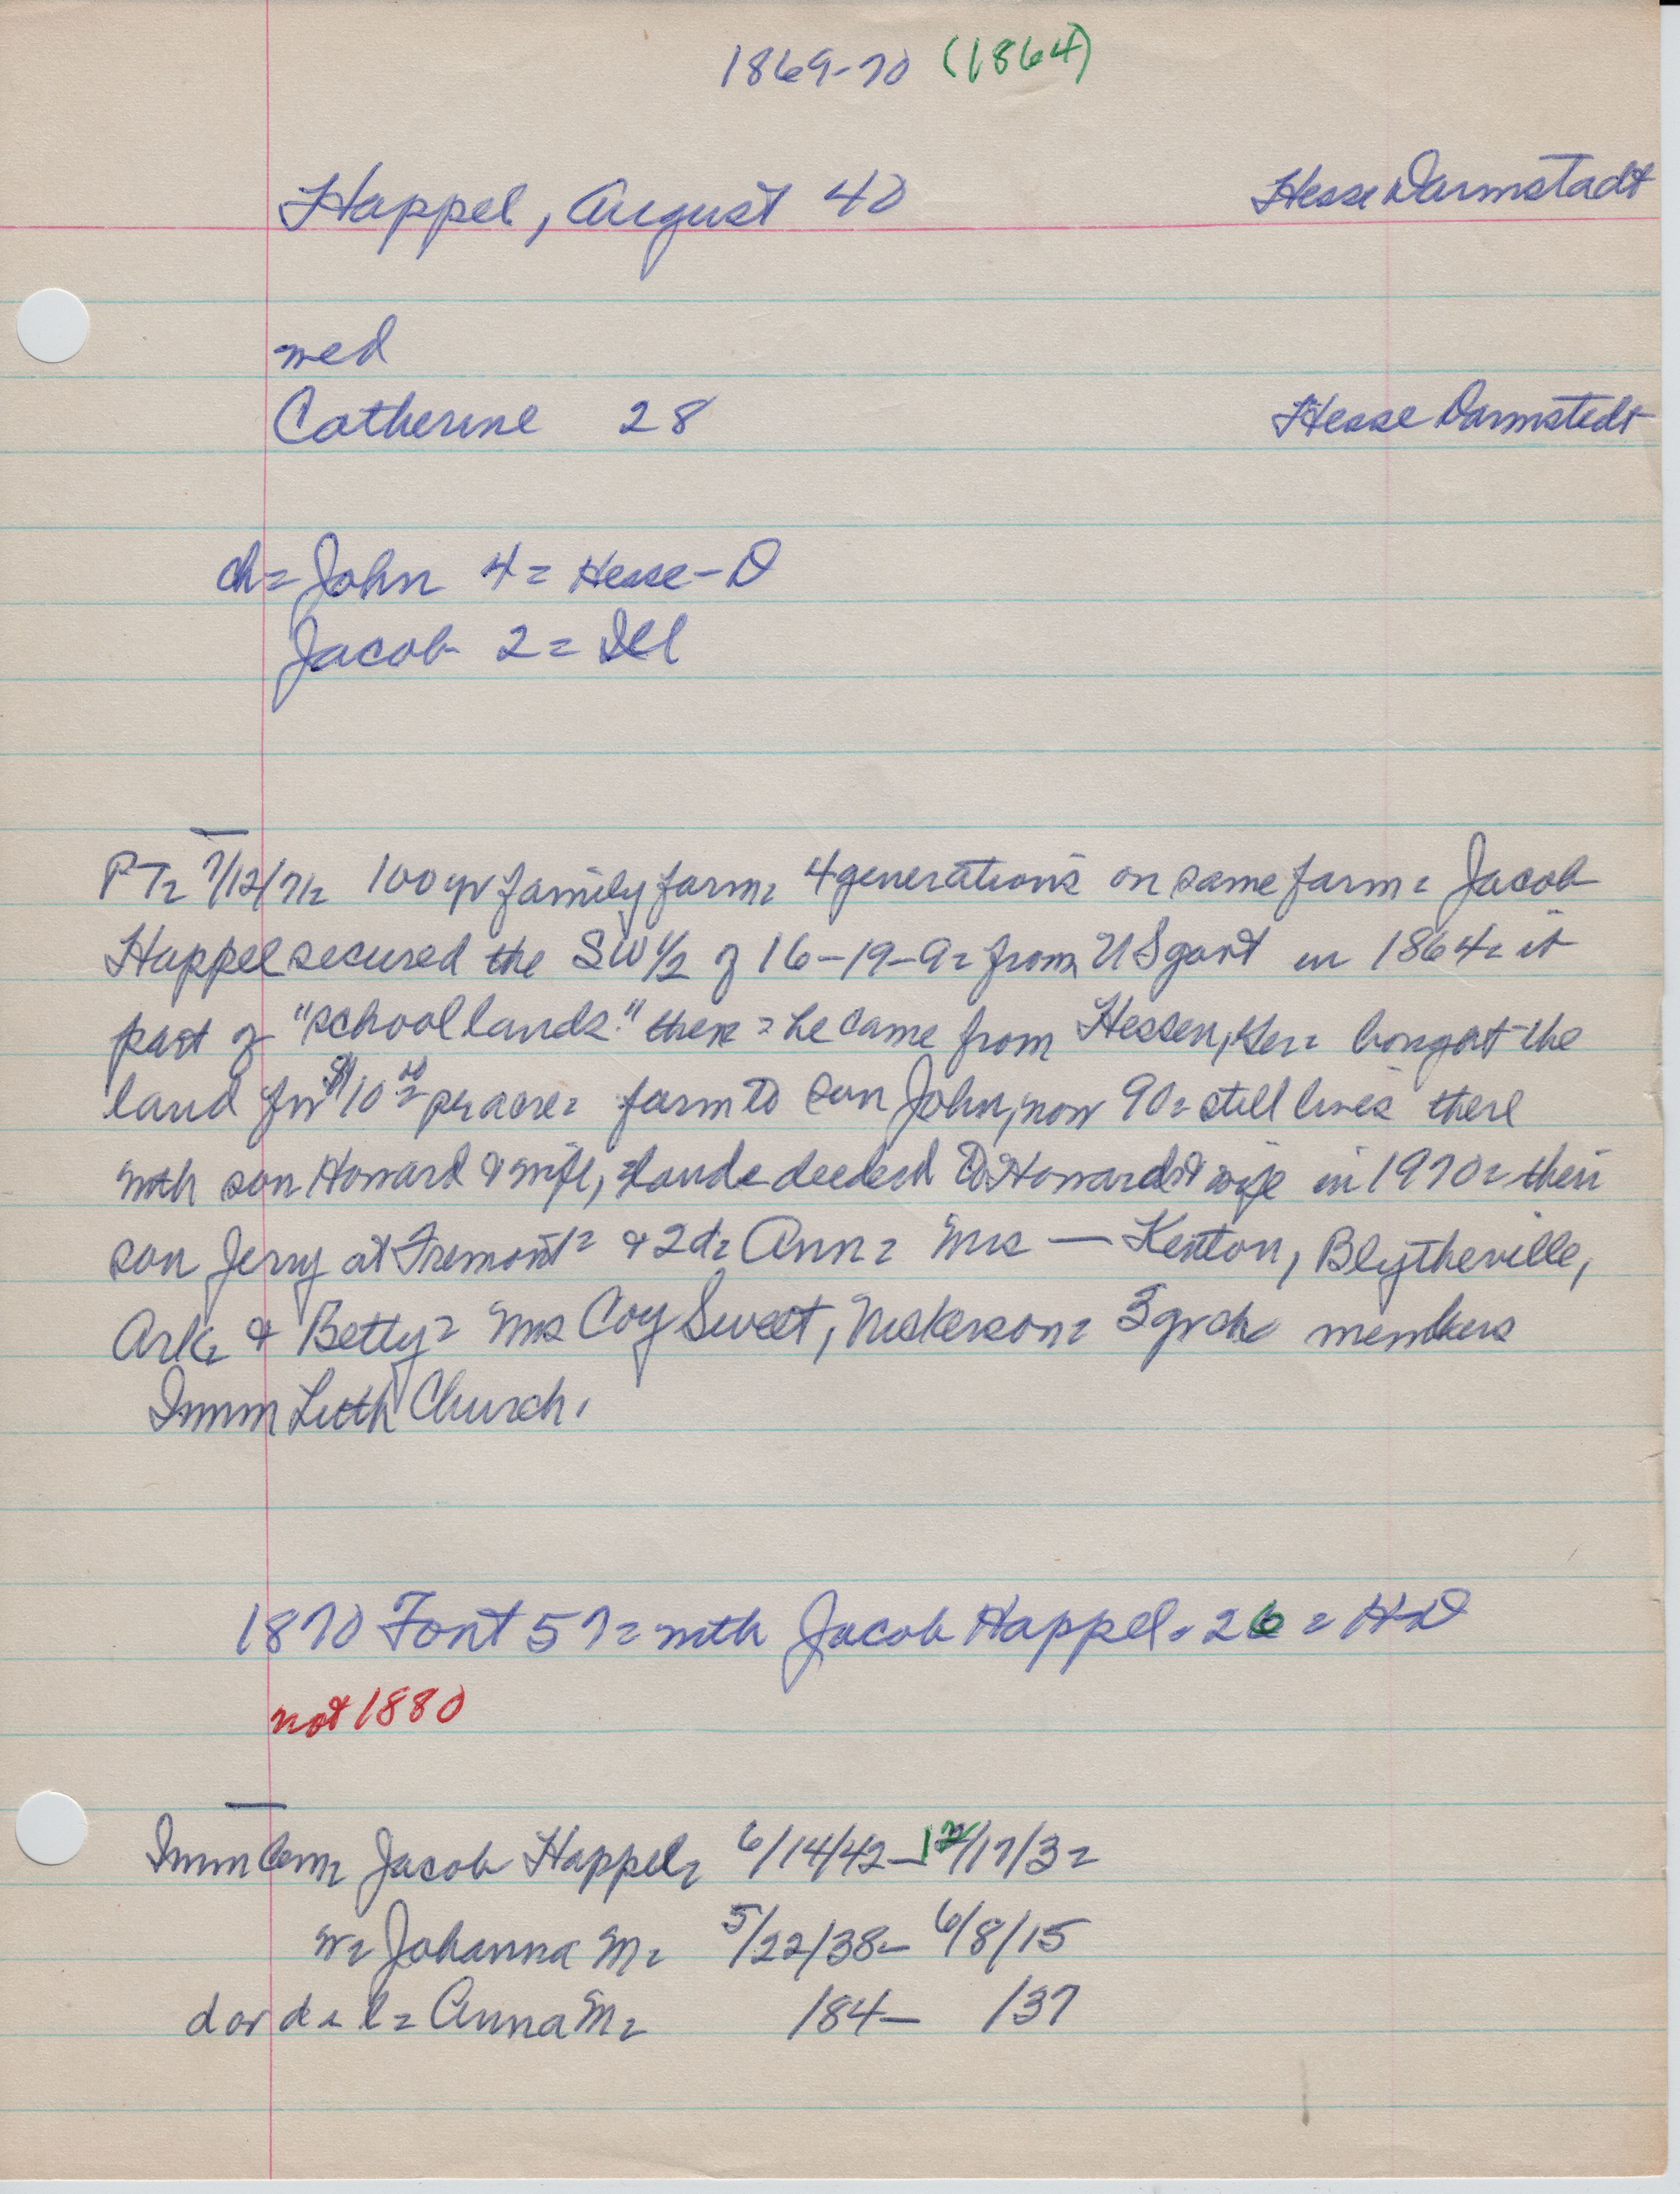 1869-70 (1864)
Happel, August 40 Hesse Darmstadt
med
Catherine 28 Hesse Darmstedt
ch= John 4 = Hesse-D
Jacob 2 = Ill
PT= 7/12/71= 100 yr family farm= 4 generations on same farm= Jacob
Happel secured the SW 1/2 of 16-19-9= from US govt in 1864= it
part of "school lands." there = he came from Hessen, Ger= bought the
land for $10.00 = per acre= farm to son John, now 90= still lives there
with son Howard & wife, land deeded to Howard & wife in 1970= their
son Jerry at Fremont= & 2d= Ann= Mrs — Kenton, Blytheville,
Ark= & Betty= Mrs Coy Sweet, Nickerson= 3 grch= members
Imm Luth Church.
1870 Font 57= with Jacob Happel= 26 = HD
not 1880
Imm Cem= Jacob Happel= 6/14/42-12/17/3=
w= Johanna M= 5/22/38- 6/8/15
d or d-l= Anna M= /84- /37